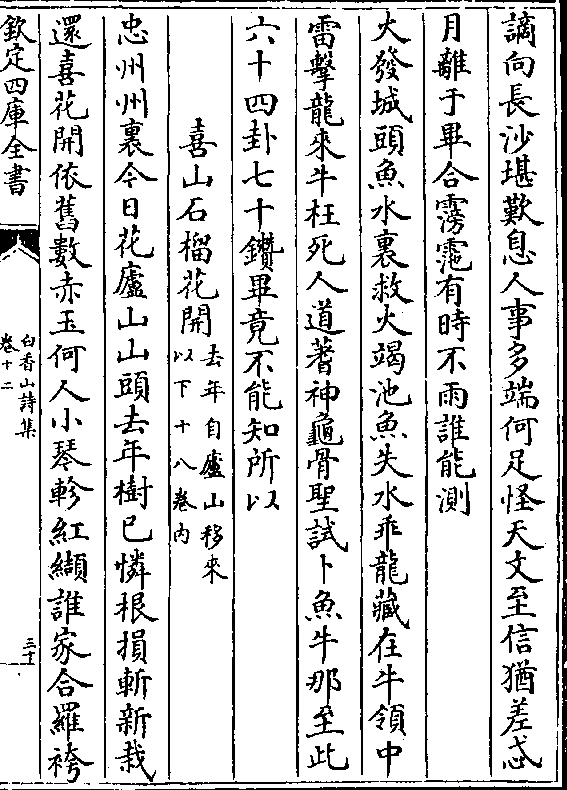 謫向長沙堪歎息人事多端何足怪天文至信猶差忒
月離于畢合霶霑有時不雨誰能測
火發城頭魚水裏救火竭池魚失水乖龍藏在牛領中
雷擊龍來牛枉死人道蓍神龜骨聖試卜魚牛那至此
六十四卦七十鑽畢竟不能知所以
喜山石榴花開
去年自廬山移來
以下十八卷内
忠州州裏今日花廬山山頭去年樹已憐根損斬新栽
還喜花開依舊數赤玉何人小琴軫紅纈誰家合羅袴
欽定四庫全書
白香山詩集
卷十二
三十